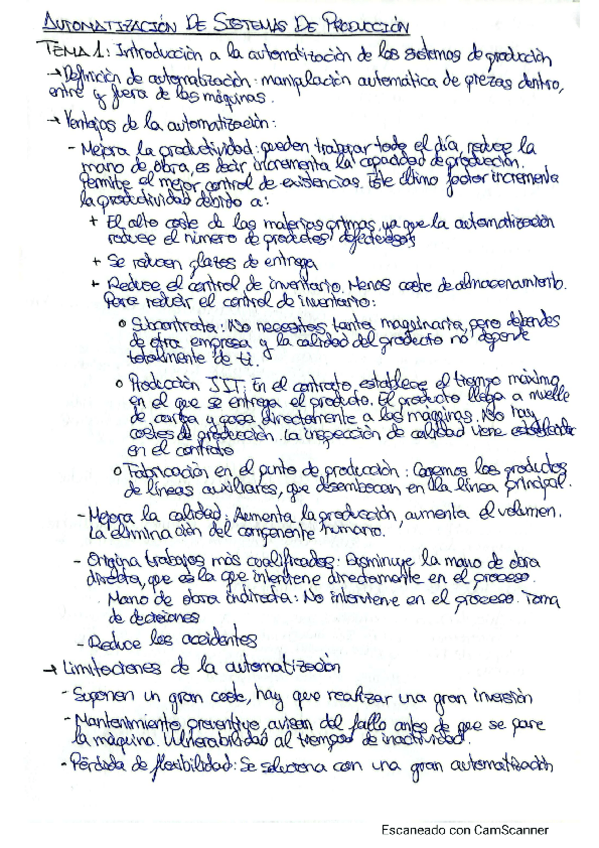 AUTOMATIZACIÓN DE SISTEMAS DE PRODUCCIÓN
TEMA 1: Introducción a la automatización de los sistemas de producción
→ Definición de automatización: manipulación automática de piezas dentro,
entre y fuera de las máquinas.
→ Ventajas de la automatización:
- Mejora la productividad: pueden trabajar todo el día, reduce la
mano de obra, es decir incrementa la capacidad de producción.
Permite el mejor control de existencias. Este último factor incrementa
la productividad debido a:
+ El alto coste de las materias primas, ya que la automatización
reduce el número de productos defectuosos
+ Se reducen plazos de entrega
+ Reduce el control de inventario. Menos coste de almacenamiento.
Para reducir el control de inventario:
o Subcontrata: No necesitas tanta maquinaria, pero dependes
de otra empresa y la calidad del producto no depende
totalmente de ti.
o Producción JIT: En el contrato, establece el tiempo máximo
en el que se entrega el producto. El producto llega a muelle
de carga y pasa directamente a las máquinas. No hay
costes de producción. La inspección de calidad viene establecida
en el contrato
o Fabricación en el punto de producción: Cogemos los productos
de líneas auxiliares, que desembocan en la línea principal.
- Mejora la calidad: Aumenta la producción, aumenta el volumen.
La eliminación del componente humano.
- Origina trabajos más cualificados: Disminuye la mano de obra
directa, que es la que interviene directamente en el proceso.
Mano de obra indirecta: No interviene en el proceso. Toma
de decisiones
- Reduce los accidentes
→ Limitaciones de la automatización
- Suponen un gran coste, hay que realizar una gran inversión
- Mantenimiento preventivo, avisan del fallo antes de que se pare
la máquina. Vulnerabilidad al tiempo de inactividad.
- Pérdida de flexibilidad: Se soluciona con una gran automatización
Escaneado con CamScanner